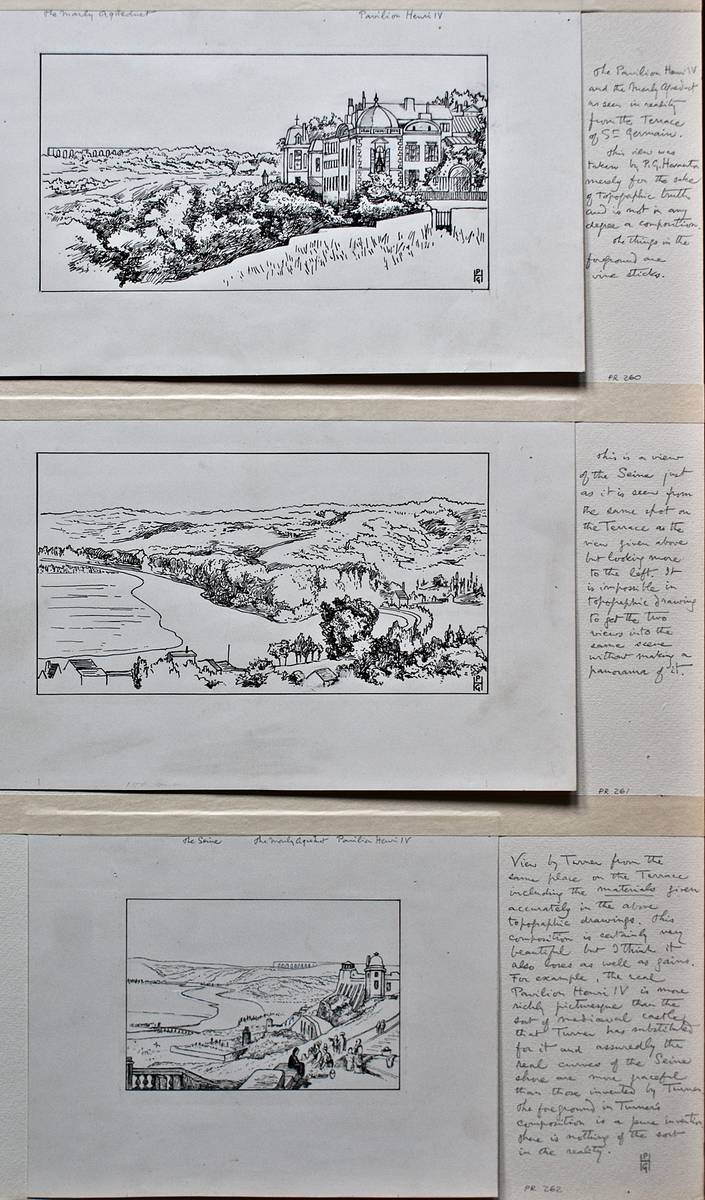 The Marly Aqueduct Pavilion Henri IV
The Pavilion Henri IV
and the Marly Aqueduct
as seen in reality
from the Terrace
of St Germains.
This view was
taken by P. G. Hamerton
merely for the sake
of topographic truth
and is not in any
degree a composition.
The things in the
foreground are
vine sticks.
PR 260
This is a view
of the Seine just
as it is seen from
the same spot on
the Terrace as the
view given above
but looking more
to the left. It
is impossible in
topographic drawing
to get the two
views into the
same scene
without making a
panorama of it.
PR 261
The Seine The Marly Aqueduct Pavilion Henri IV
View by Turner from the
same place on the Terrace
including the materials given
accurately in the above
topographic drawings. This
composition is certainly very
beautiful but I think it
also loses as well as gains.
For example, the real
Pavilion Henri IV is more
richly picturesque than the
sort of mediaeval castle
that Turner has substituted
for it and assuredly the
real curves of the Seine
shore are more graceful
than those invented by Turner.
The foreground in Turner's
composition is a pure invention
there is nothing of the sort
in the reality.
PR 262